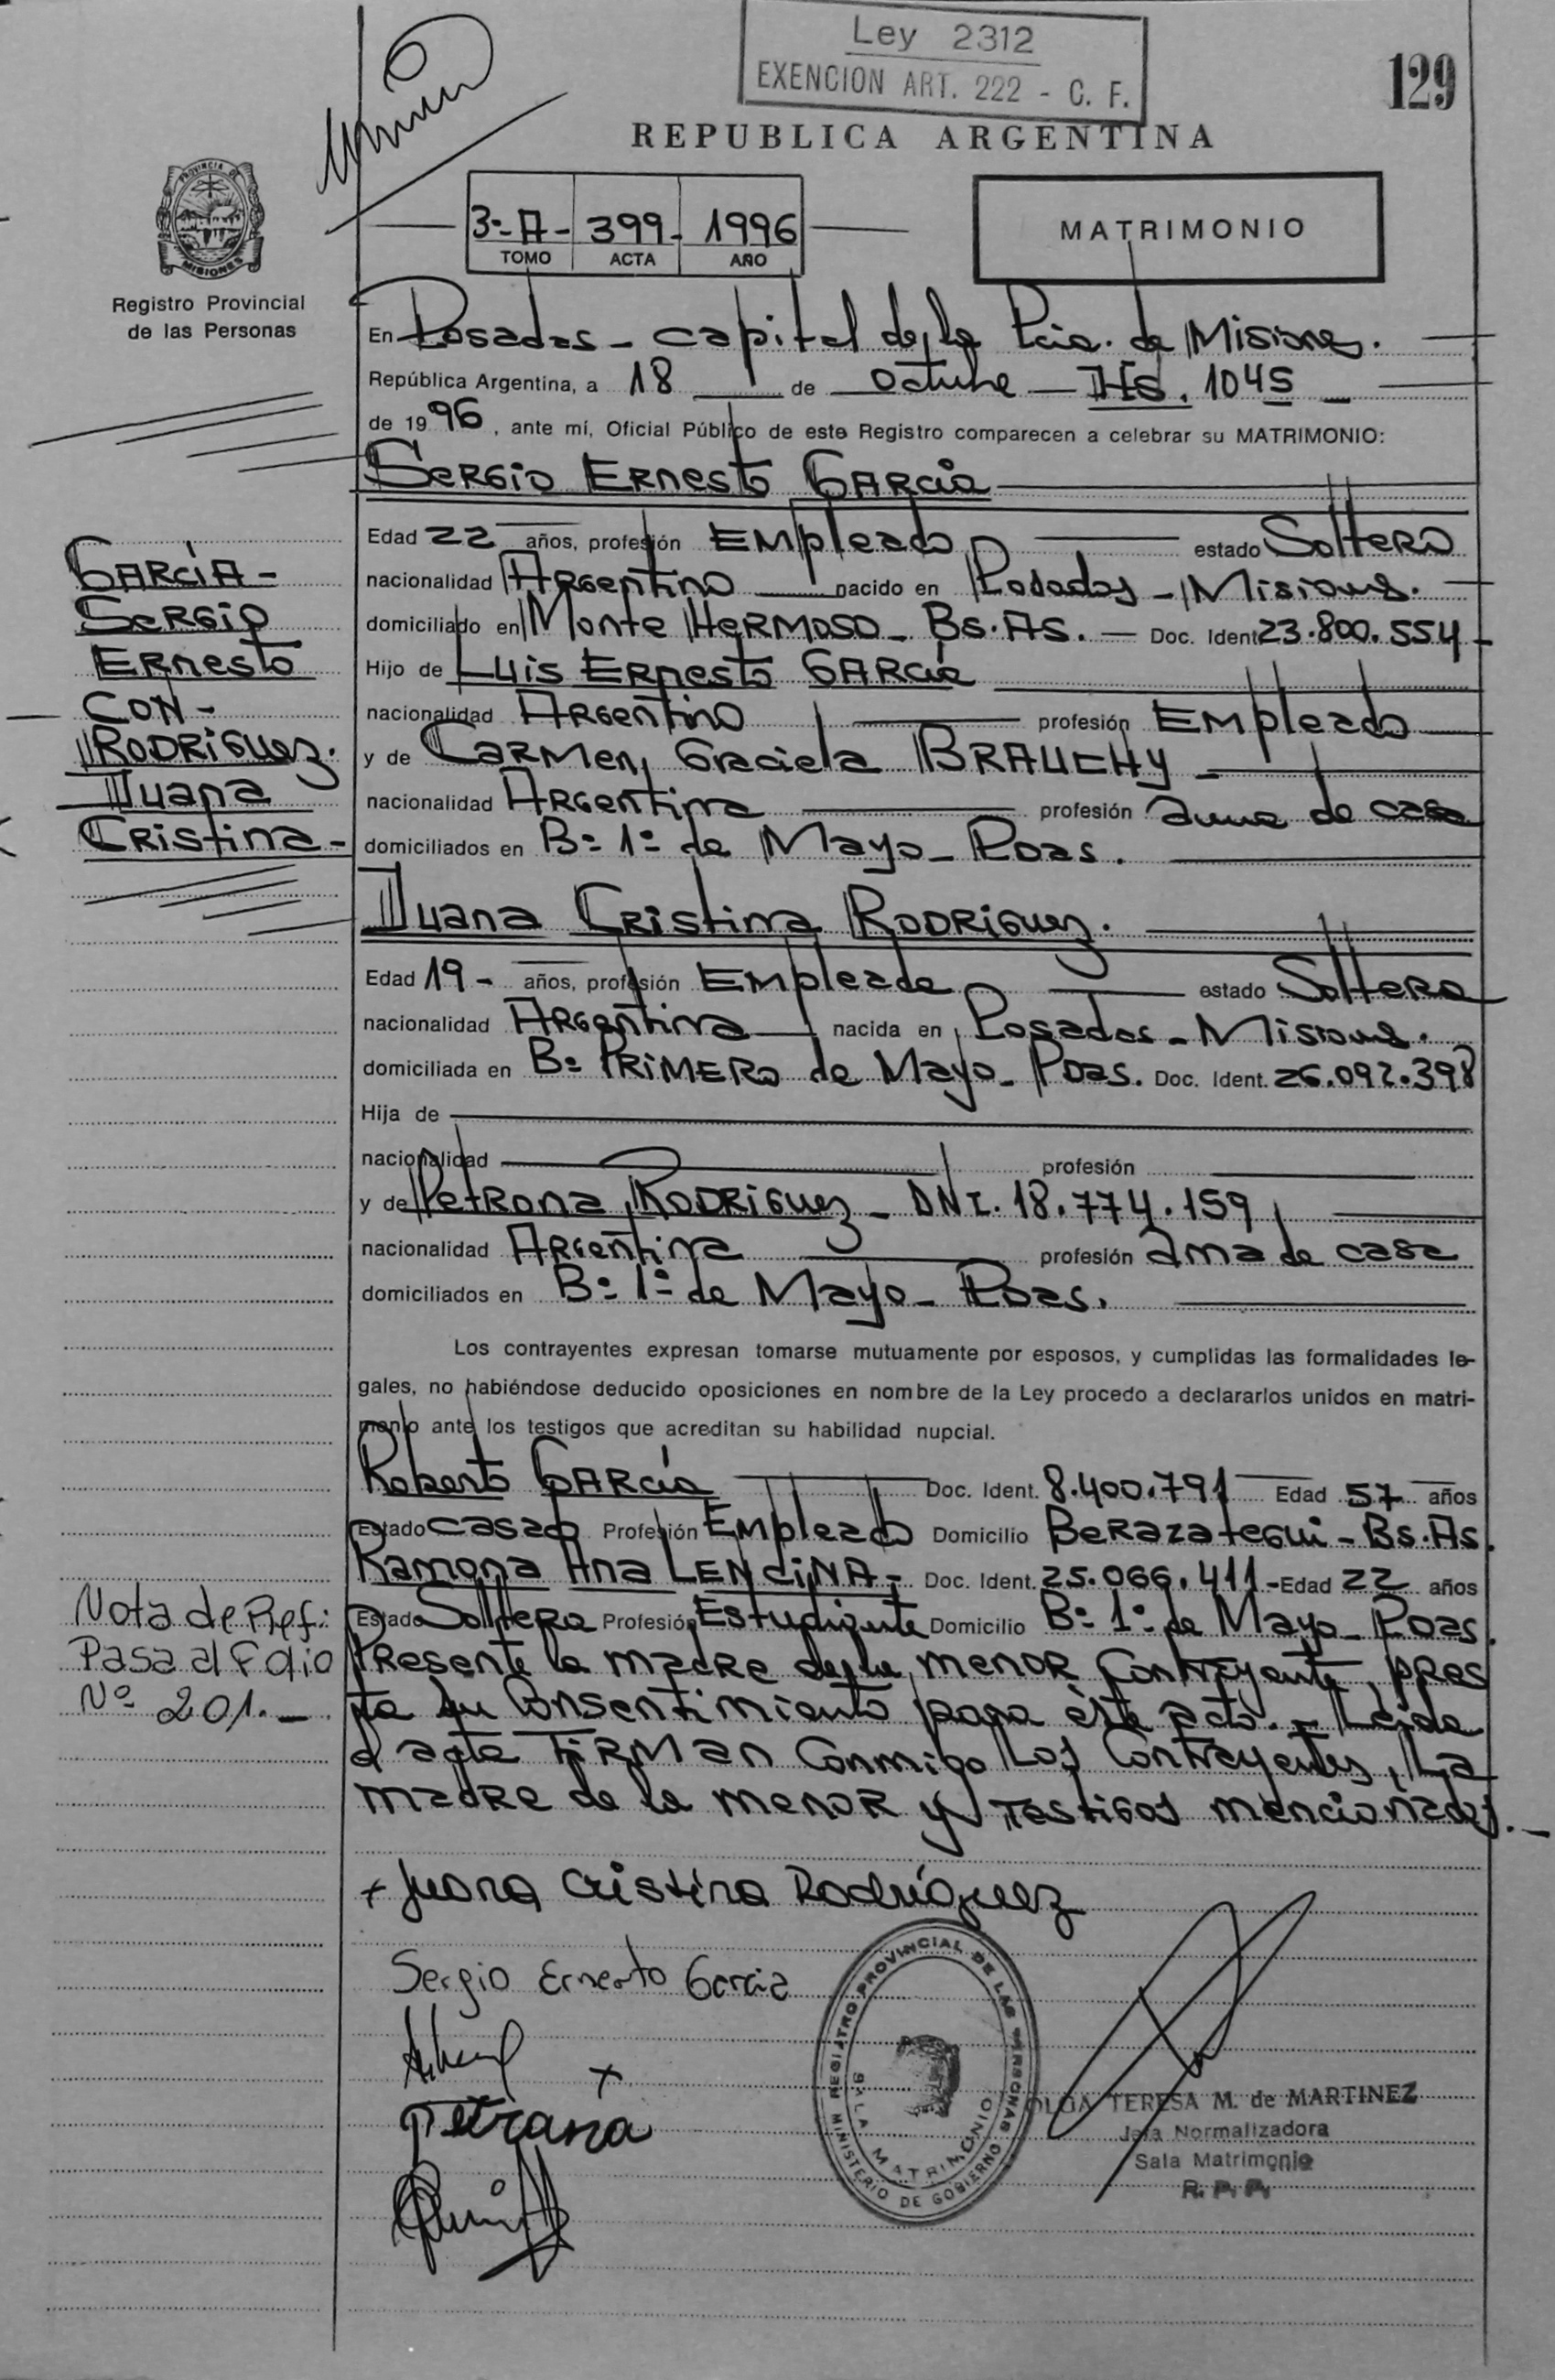 Ley 2312
EXENCION ART. 222 - C. F.
129
REPUBLICA ARGENTINA
PROVINCIA DE
MISIONES
Registro Provincial
de las Personas
3º-A- 399- 1996
TOMO ACTA AÑO
MATRIMONIO
En Posadas - Capital de la Pcia. de Misiones.
República Argentina, a 18 de octubre - HS. 1045
de 1996, ante mí, Oficial Público de este Registro comparecen a celebrar su MATRIMONIO:
Sergio Ernesto GARCIA
Edad 22 años, profesión Empleado estado Soltero
nacionalidad Argentino nacido en Posadas - Misiones.
domiciliado en Monte Hermoso - Bs. As. - Doc. Ident 23.800.554-
Hijo de Luis Ernesto GARCIA
nacionalidad Argentino profesión Empleado
y de Carmen Graciela BRAUCHY -
nacionalidad Argentina profesión ama de casa
domiciliados en Bº 1º de Mayo - Pdas.
Juana Cristina Rodriguez.
Edad 19- años, profesión Empleada estado Soltera
nacionalidad Argentina nacida en Posadas - Misiones.
domiciliada en Bº Primero de Mayo - Pdas. Doc. Ident. 26.092.398
Hija de
nacionalidad profesión
y de Petrona Rodriguez - DNI. 18.774.159
nacionalidad Argentina profesión ama de casa
domiciliados en Bº 1º de Mayo - Pdas.
Los contrayentes expresan tomarse mutuamente por esposos, y cumplidas las formalidades le-
gales, no habiéndose deducido oposiciones en nombre de la Ley procedo a declararlos unidos en matri-
monio ante los testigos que acreditan su habilidad nupcial.
Roberto GARCIA Doc. Ident. 8.400.791 Edad 57 años
Estado casado Profesión Empleado Domicilio Berazategui - Bs. As.
Ramona Ana LENCINA - Doc. Ident. 25.066.411 - Edad 22 años
Estado Soltera Profesión Estudiante Domicilio Bº 1º de Mayo - Pdas.
Presente la madre de la menor contrayente, pres
ta su consentimiento para éste acto. - Leída
el acta firman conmigo los contrayentes, la
madre de la menor y testigos mencionados. -
GARCIA -
Sergio
Ernesto
CON -
Rodriguez.
Juana
Cristina -
Nota de Ref:
Pasa al Folio
Nº 201. -
+ Juana Cristina Rodríguez
Sergio Ernesto Garcia
Petrona
REGISTRO PROVINCIAL DE LAS PERSONAS
SALA MATRIMONIO
MINISTERIO DE GOBIERNO
OLGA TERESA M. de MARTINEZ
Jefa Normalizadora
Sala Matrimonio
R. P. P.